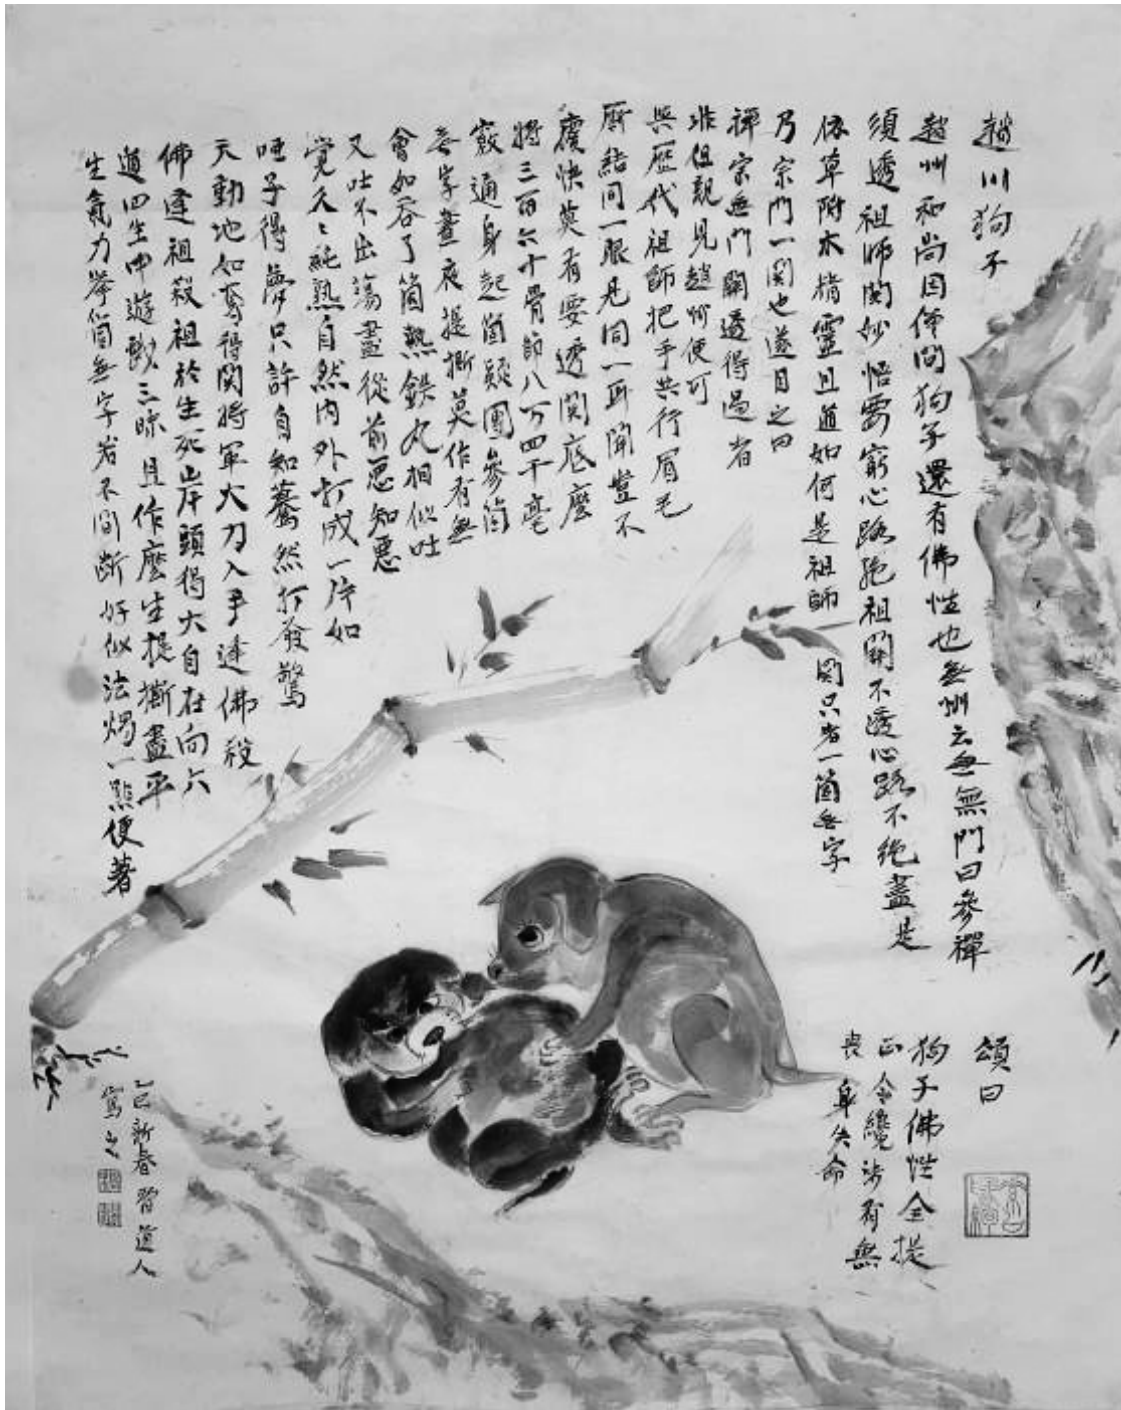 趙州狗子
趙州和尚因僧問狗子還有佛性也無州云無無門曰參禪
須透祖師関妙悟要窮心路絶祖関不透心路不絶盡是
依草附木精靈且道如何是祖師関只者一箇無字
乃宗門一関也遂目之曰
禪宗無門関透得過者
非但親見趙州便可
與歴代祖師把手共行眉毛
厮結同一眼見同一耳聞豈不
慶快莫有要透関底麼
將三百六十骨節八万四千毫
竅通身起箇疑團參箇
無字晝夜提撕莫作有無
會如吞了箇熱鉄丸相似吐
又吐不出蕩盡從前惡知惡
覺久々純熟自然内外打成一片如
唖子得夢只許自知驀然打發驚
天動地如奪得関将軍大刀入手逢佛殺
佛逢祖殺祖於生死岸頭得大自在向六
道四生中遊戯三昧且作麼生提撕盡平
生氣力挙箇無字若不間断好似法燭一點便著
頌曰
狗子佛性全提
正令纔渉有無
喪身失命
乙巳新春習道人
寫之